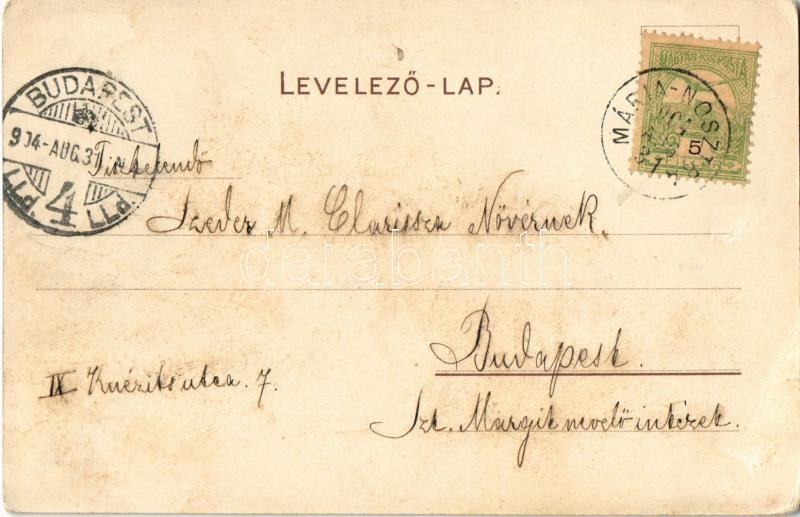 LEVELEZŐ-LAP.
BUDAPEST
904-AUG.31
4
P.T.T.
MÁRIA-NOSZTRA
MAGYAR KIR POSTA
5
Tisztelendő
Szeder M. Clarissza Nővérnek.
darabanth
Budapest.
IX Knézits utca. 7.
Szt. Margit nevelő intézet.